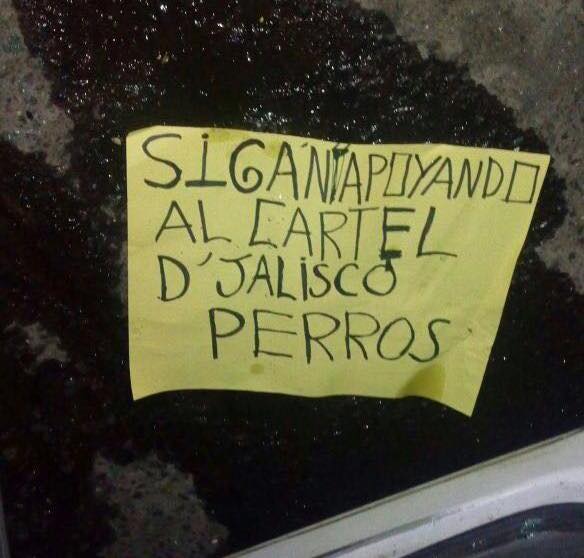 SIGAN APOYANDO
AL CARTEL
D'JALISCO
PERROS